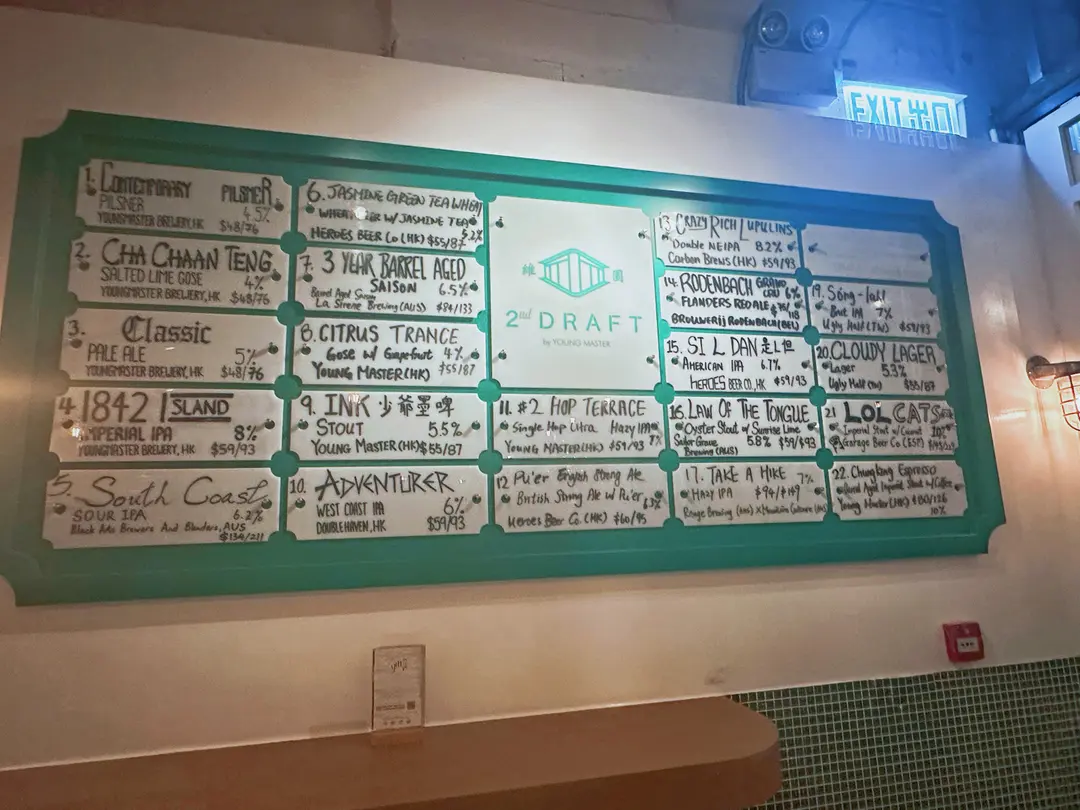 EXIT 出口
1. CONTEMPORARY PILSNER
PILSNER 4.5%
YOUNGMASTER BREWERY, HK $48/76
2. CHA CHAAN TENG
SALTED LIME GOSE 4%
YOUNGMASTER BREWERY, HK $48/76
3. Classic
PALE ALE 5%
YOUNGMASTER BREWERY, HK $48/76
4. 1842 ISLAND
IMPERIAL IPA 8%
YOUNGMASTER BREWERY, HK $59/93
5. South Coast
SOUR IPA 6.2%
Brewers And Blenders, AUS
$134/211
6. JASMINE GREEN TEA WHEAT
WHEAT BEER W/ JASMINE TEA
5.2%
HEROES BEER Co (HK) $55/87
7. 3 YEAR BARREL AGED
SAISON 6.5%
Barrel Aged Saison
La Sirene Brewing (AUS) $84/133
8. CITRUS TRANCE
Gose w/ Grapefruit 4%
YOUNG MASTER (HK) $55/87
9. INK 少爺墨啤
STOUT 5.5%
YOUNG MASTER (HK) $55/87
10. ADVENTURER
WEST COAST IPA 6%
DOUBLE HAVEN, HK $59/93
2nd DRAFT
by YOUNG MASTER
11. #2 HOP TERRACE
Single Hop Citra Hazy IPA
7%
YOUNG MASTER (HK) $59/93
12 Pu'er English Strong Ale
British Strong Ale w/ Pu'er
Heroes Beer Co. (HK) $60/95
13 CRAZY RICH LUPULINS
Double NEIPA 8.2%
Carbon Brews (HK) $59/93
14. RODENBACH GRAND
CRU 6%
FLANDERS RED ALE $75/
118
BROUWERIJ RODENBACH (BEL)
15. SI L DAN 是L但
AMERICAN IPA 6.7%
HEROES BEER CO, HK $59/93
16. LAW OF THE TONGUE
Oyster Stout w/ Sunrise Lime
Sailor Grave 5.8% $59/$93
Brewing (AUS)
17. TAKE A HIKE 7%
HAZY IPA $94/$149
19. Sóng-lah!
Brut IPA 7%
Ugly Half (TW) $59/93
20. CLOUDY LAGER
Lager 5.3%
Ugly Half (TW) $55/87
21 LOL CATS
Imperial Stout w/
10%
Garage Beer Co (ESP)
22. Chungking Espresso
Barrel Aged Imperial Stout w/ Coffee
Young Master (HK) $80/126
10%